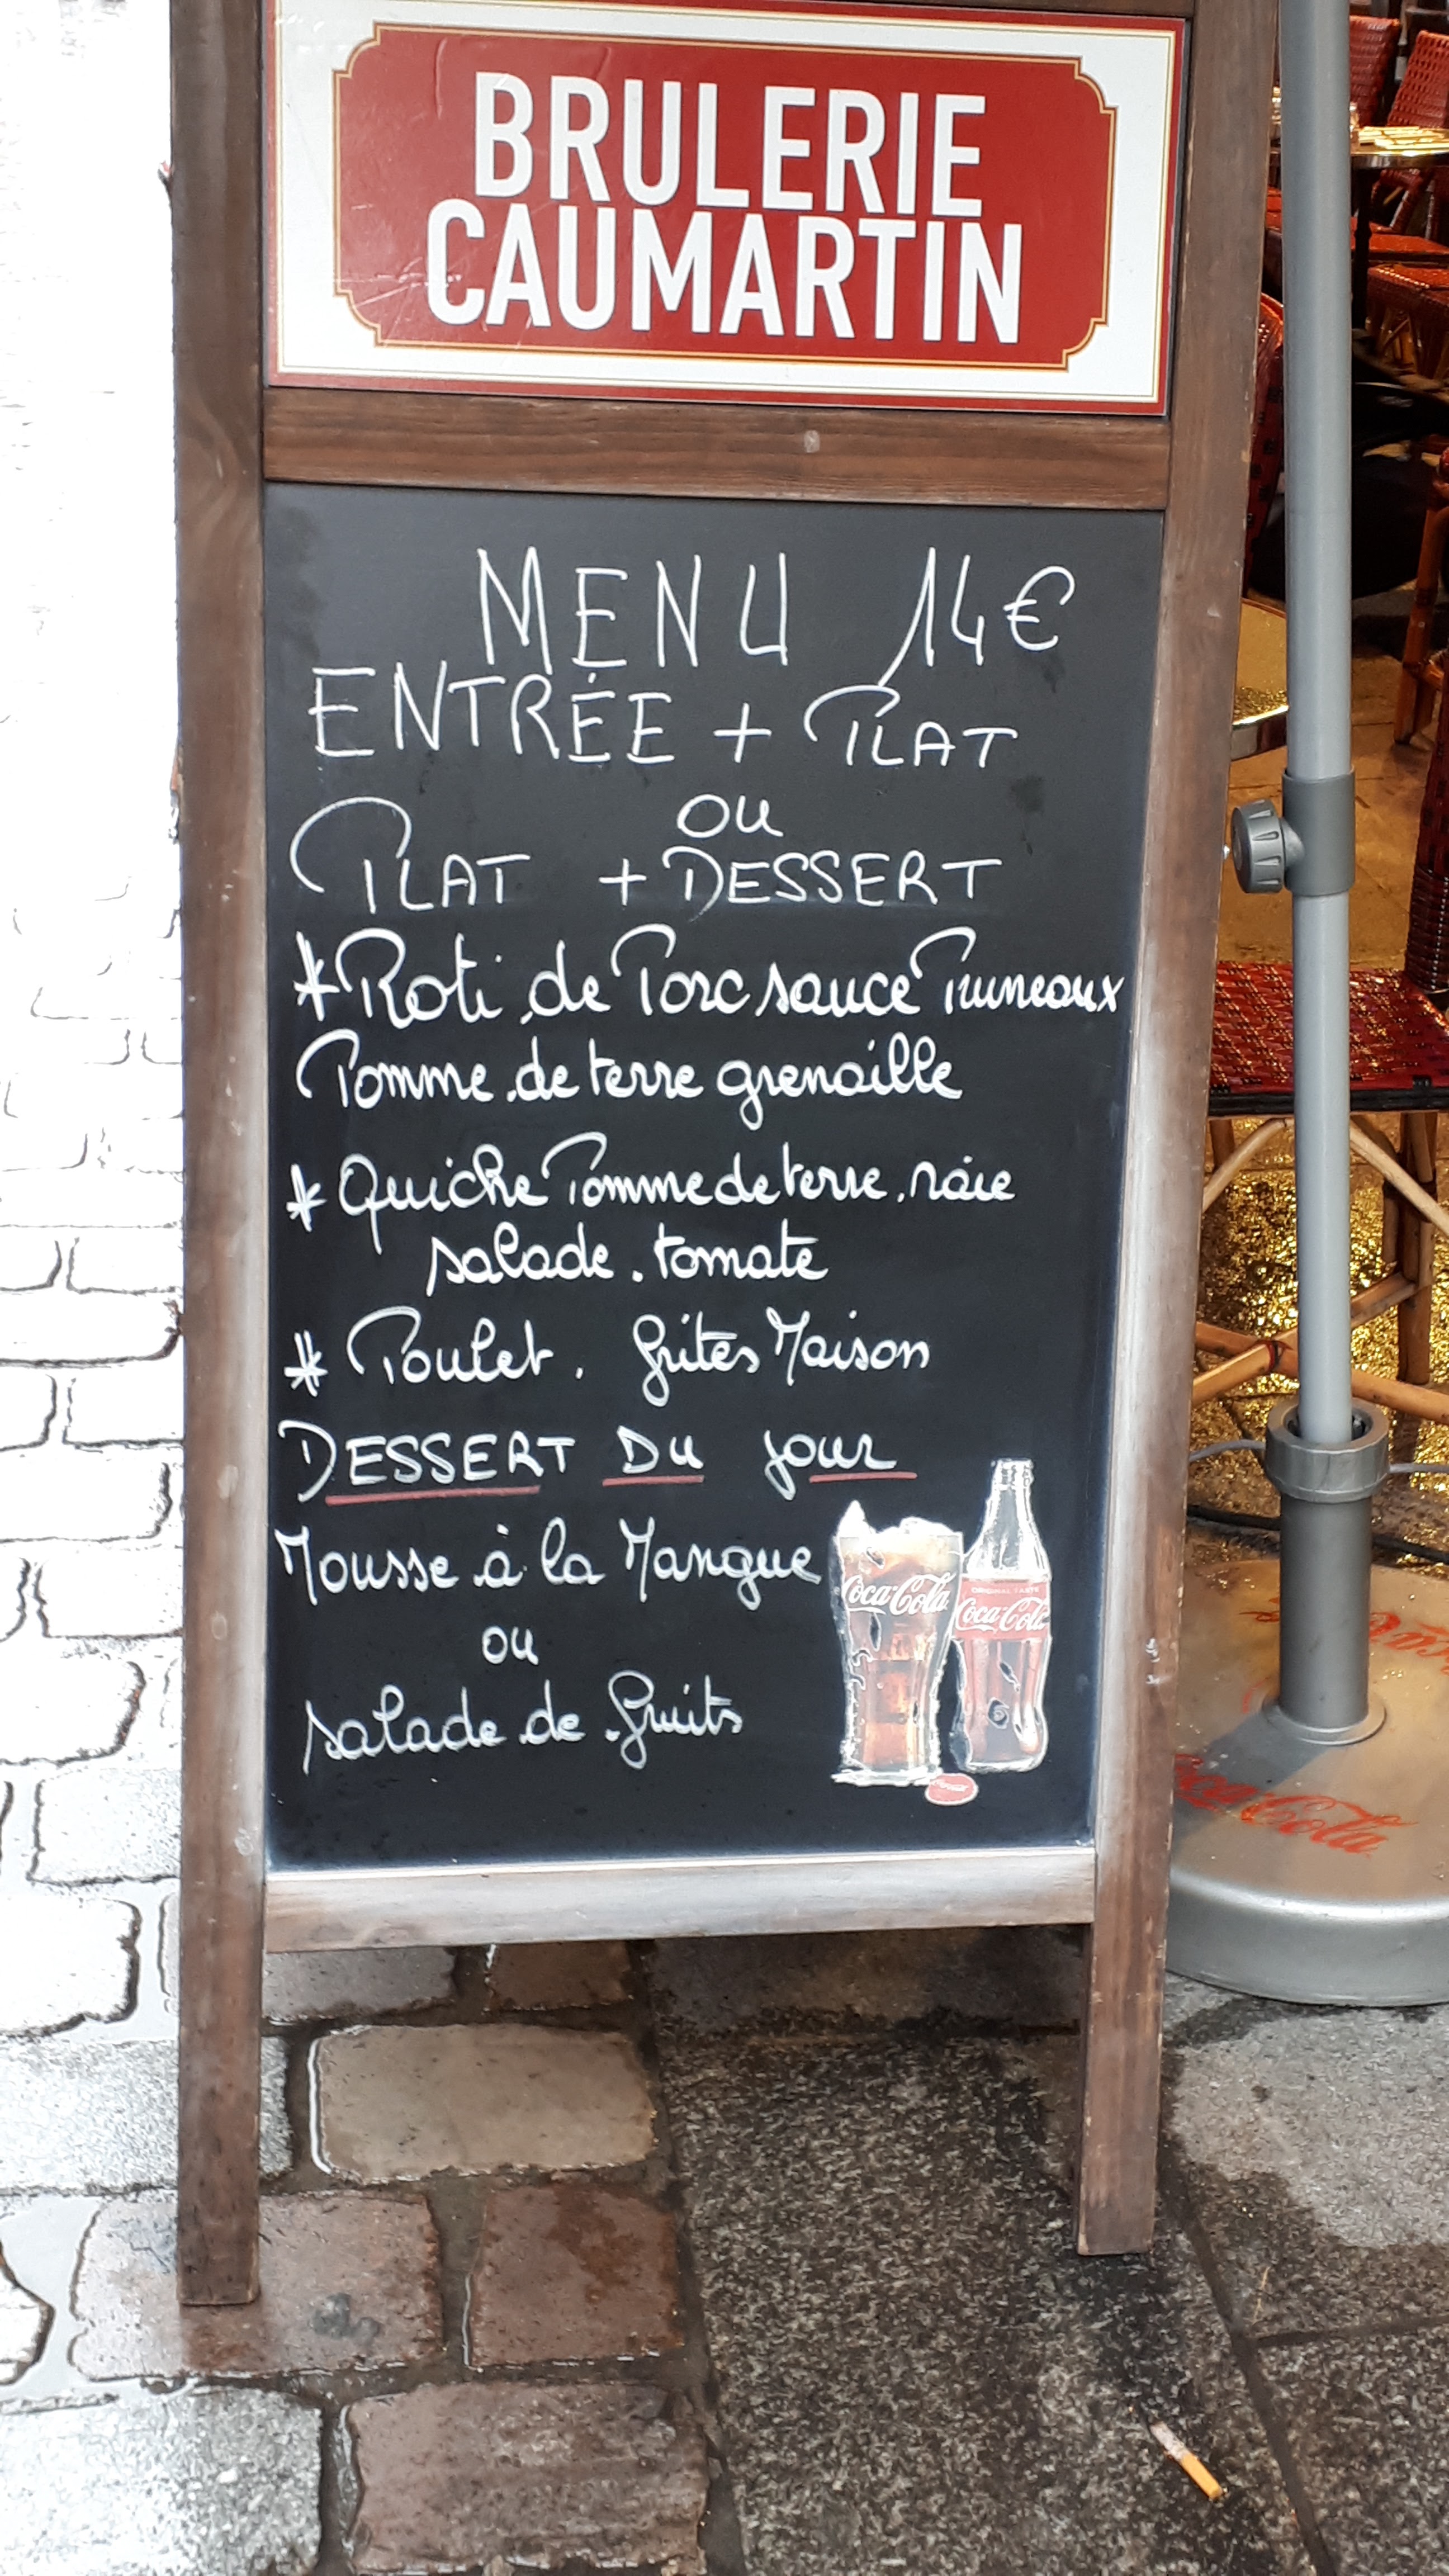 BRULERIE
CAUMARTIN
MENU 14€
ENTRÉE + PLAT
ou
PLAT + DESSERT
*Roti de Porc sauce Pruneaux
Pomme de terre grenaille
* Quiche Pomme de terre, raie
salade. tomate
* Poulet. frites Maison
DESSERT DU jour
Mousse à la Mangue
ou
salade de fruits
Coca-Cola
ORIGINAL TASTE
Coca-Cola
Coca-Cola